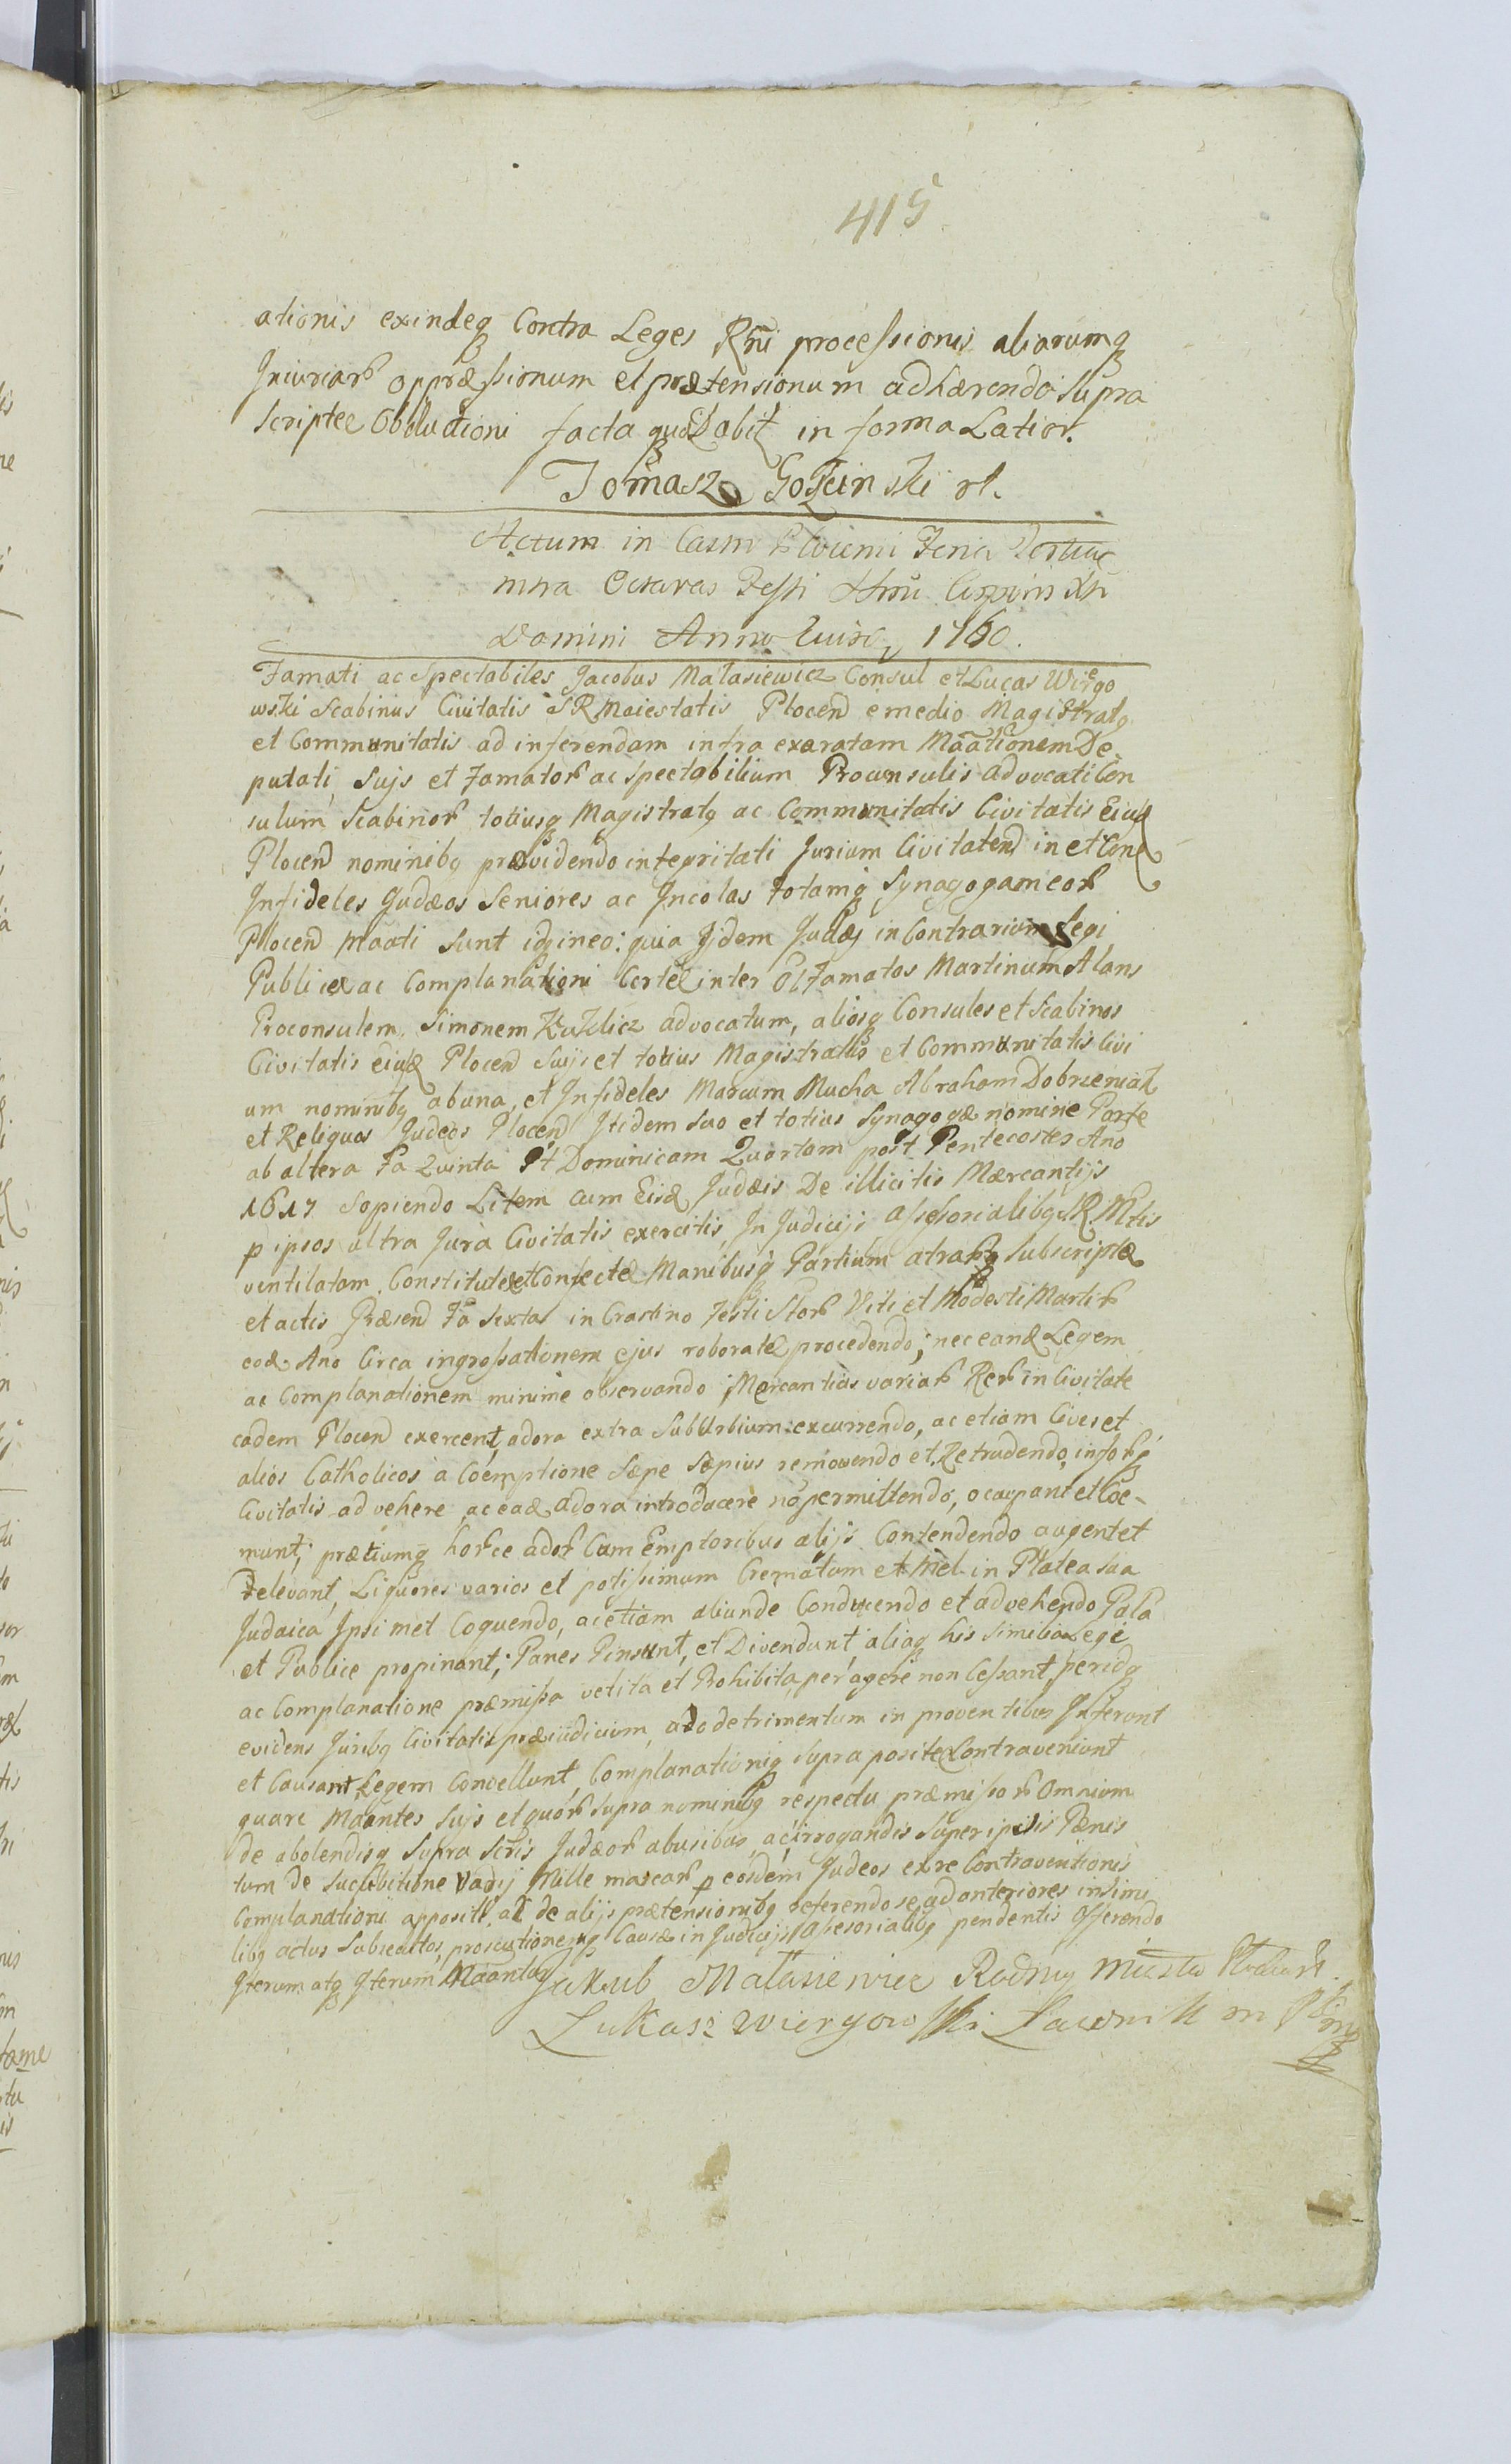 415
ationis exindeq Contra Leges Rñi processionis aliarumq
Iniuriar oppræssionum et prætensionum adhærendo supra
scriptæ Obductioni facta quæ Dabit in forma Latior.
Tomasz Gościnski rt.
Actum in Castro Plocensi Feria Tertia
intra Octavas Festi Sṁi Corporis Xti
Domini Anno Eiusd, 1760.
Famati ac Spectabiles Jacobus Małasiewicz Consul et Lucas Wiergo
wski Scabinus Civitatis SR Maiestatis Plocen e medio Magistratq
et Communitatis ad inferendam infra exaratam Mãationem De
putati, Suis et Famator ac Spectabilium Proconsulis advocati Con
sulum Scabinor totiusq Magistratq ac Communitatis Civitatis Eiusd
Plocen nominibq prævidendo integritati Jurium Civitaten in et Con
Infideles Judæos Seniores ac Incolas Totamq Synagogam eor
Plocen Mãati Sunt idq in eo: quia Iidem Judæi in Contrarium Legi
Publicæ ac Complanationi Certæ inter Ol Famatos Martinum Alans
Proconsulem, Simonem advocatum, aliosq Consules et Scabinos
Civitatis eiusd Plocen Suis et totius Magistratus et Communitatis Civi
um nominibq ab una, et Infideles Marcum Mucha Abraham Dobrzeniak
et Reliquos Judeos Plocen Itidem Suo et totius Synagogæ nomine Parte
ab altera Fa Quinta Pt Dominicam Quartam post Pentecostes Ano
1617 Sopiendo Litem cum Eisd Judæis De illicitis Mercantijs
p ipsos ultra Jura Civitatis exercitis, In Judicijs assesorialibq SR Mtis
ventilatam, Constitutæ et Confectæ Manibusq Partium utrarq Subscriptæ
et actis Præsen Fa Sexta in Crastino Festi Stor Viti et Modesti Martir
eod Ano Circa ingrossationem ejus roboratæ procedendo; nec eand Legem
ac Complanationem minime observando Mercantias variar Rer in Civitate
eadem Plocen exercent, adora extra Suburbium excurrendo, ac etiam Cives et
alios Catholicos à Coemptione Sæpe Sæpius removendo et Retrudendo, in for
Civitatis advehere, ac ead adora introducere nõ permittendo, occupant et Coe-
munt; prætiumq horce ador Cum Emptoribus alijs Contendendo augent et
relevant, Liquores varios et potissimum Crematum et Mel in Platea sua
Judaica Ipsimet Coquendo, ac etiam aliunde Conducendo et advehendo Pala
et Publice propinant; Panes Pinsunt, et Divendunt, aliaq his Similia Lege
ac Complanatione præmissa vetita et Prohibita, peragere non Cessant, peridq
evidens Juribq Civitatis præiudicium, ado detrimentum in proventibus Inferunt
et Causant, Legem Convellunt, Complanationiq Supra positæ Contraveniunt
quare Mãantes Suis et quor supra nominibq respectu præmissor Omnium
de abolendisq Supra Scris Judæor abusibus, ac irrogandis Super ipsis Pænis
tum de Succubitione Vadij Mille marcar p eosdem Judeos ex re Contraventionis
Complanationi appositi, ac de alijs prætensionibq referendo se ad anteriores in Simi
libq actus Subsecutos, prosecutionemq Causæ in Judicijs Assesorialibq pendentis Offerendo
Iterum atq Iterum Mãantur
Jakub Małasiewicz Radny Miasta
Łukasz Wiergowski Ławnik m